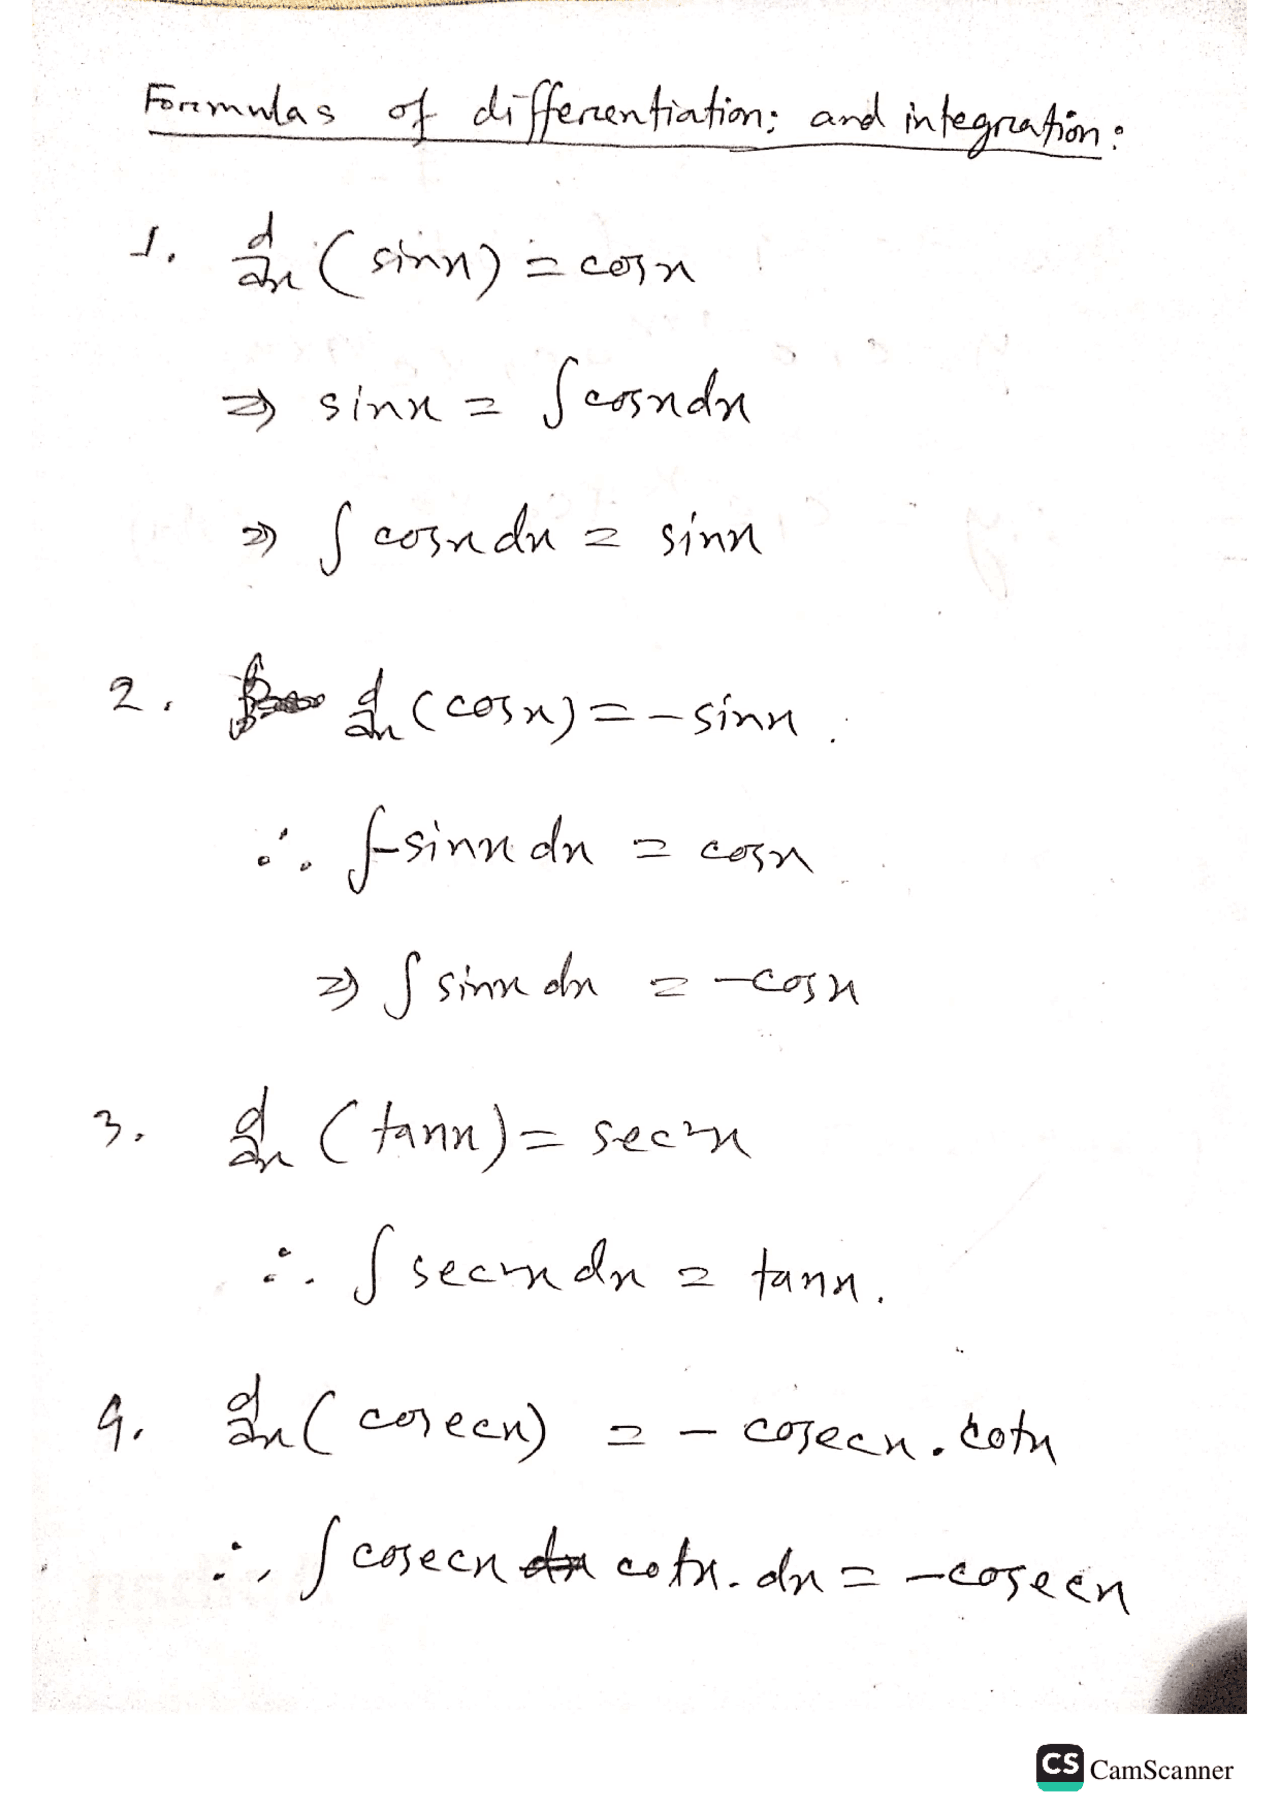 Formulas of differentiation; and integration:
1. d/dx (sinx) = cosx
⇒ sinx = ∫cosxdx
⇒ ∫cosxdx = sinx
2. d/dx (cosx) = -sinx.
∴ ∫-sinxdx = cosx
⇒ ∫sinxdx = -cosx
3. d/dx (tanx) = sec²x
∴ ∫sec²xdx = tanx.
4. d/dx (cosecx) = - cosecx.cotx
∴ ∫cosecx cotx.dx = -cosecx
CS CamScanner